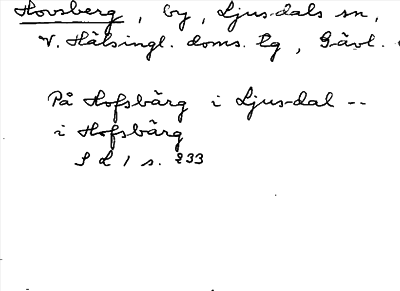 Hovsberg, by, Ljusdals sn,
V. Hälsingl. doms. lg, Gävl.
På Hofsbärg i Ljusdal --
i Hofsbärg
S L 1 s. 233